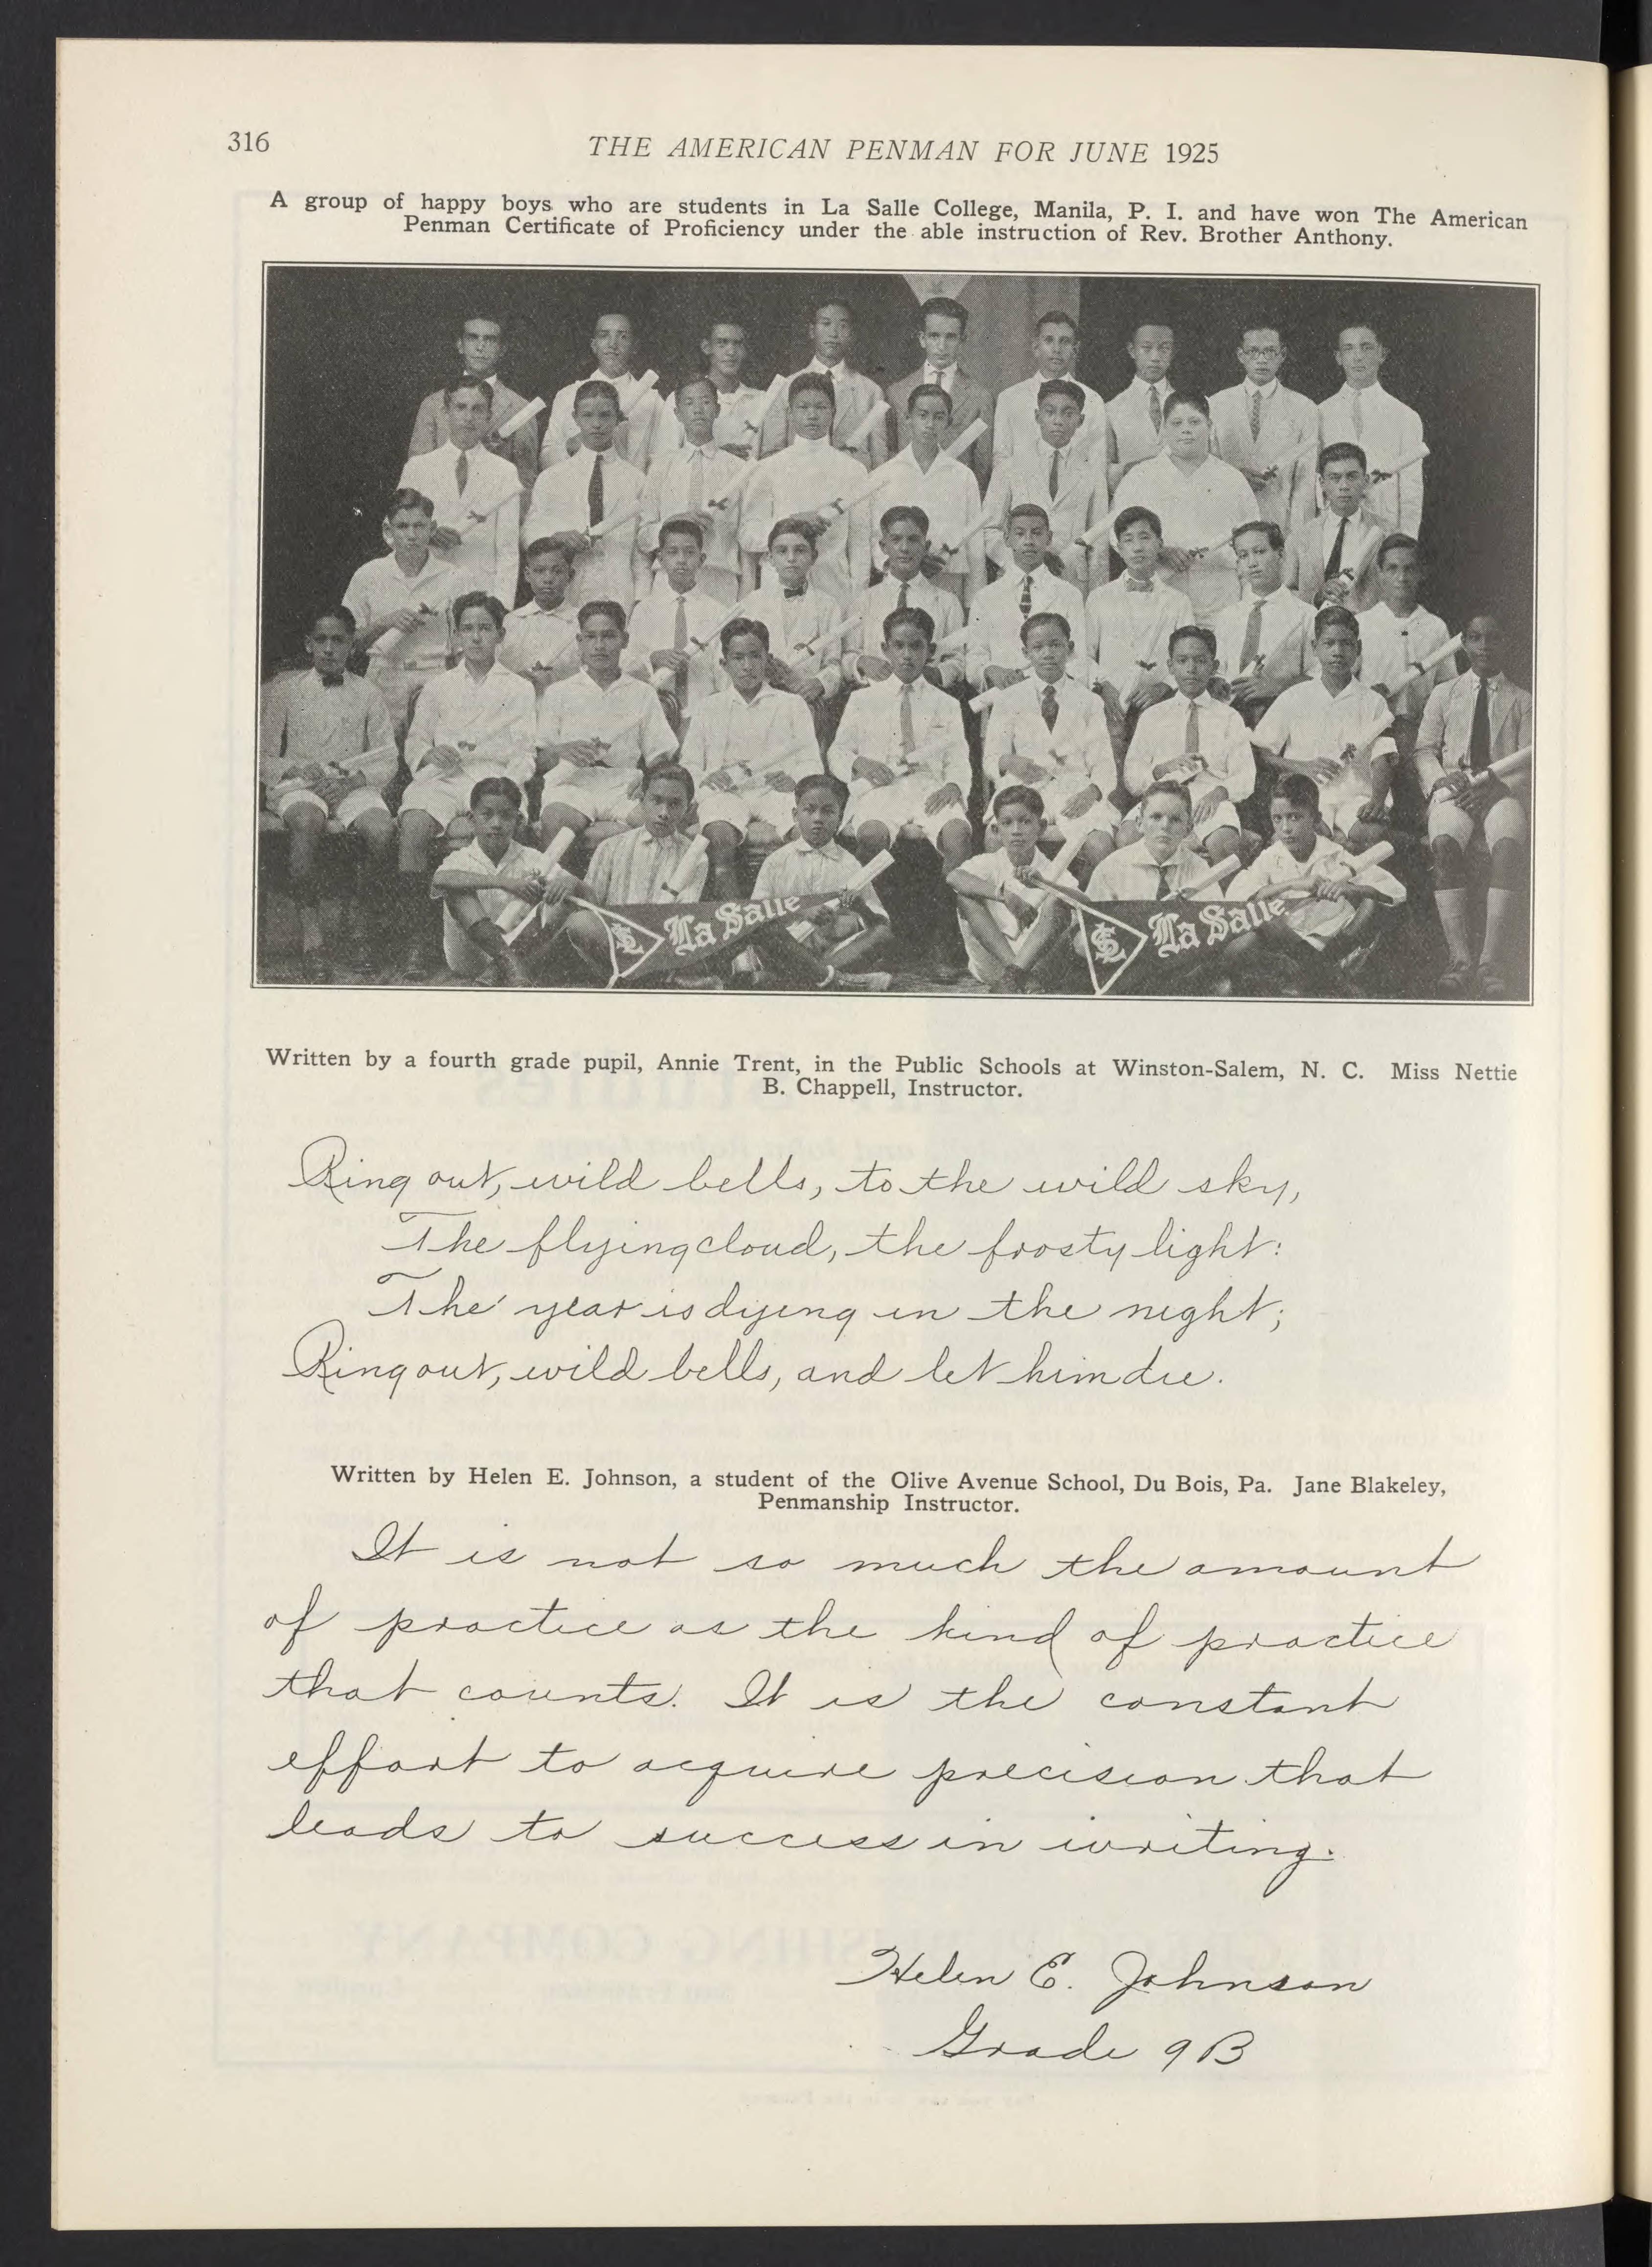 316
THE AMERICAN PENMAN FOR JUNE 1925
A group of happy boys who are students in La Salle College, Manila, P. I. and have won The American
Penman Certificate of Proficiency under the able instruction of Rev. Brother Anthony.
La Salle
La Salle
Written by a fourth grade pupil, Annie Trent, in the Public Schools at Winston-Salem, N. C. Miss Nettie
B. Chappell, Instructor.
Ring out, wild bells, to the wild sky,
The flying cloud, the frosty light:
The year is dying in the night;
Ring out, wild bells, and let him die.
Written by Helen E. Johnson, a student of the Olive Avenue School, Du Bois, Pa. Jane Blakeley,
Penmanship Instructor.
It is not so much the amount
of practice as the kind of practice
that counts. It is the constant
effort to acquire precision that
leads to success in writing.
Helen E. Johnson
Grade 9B